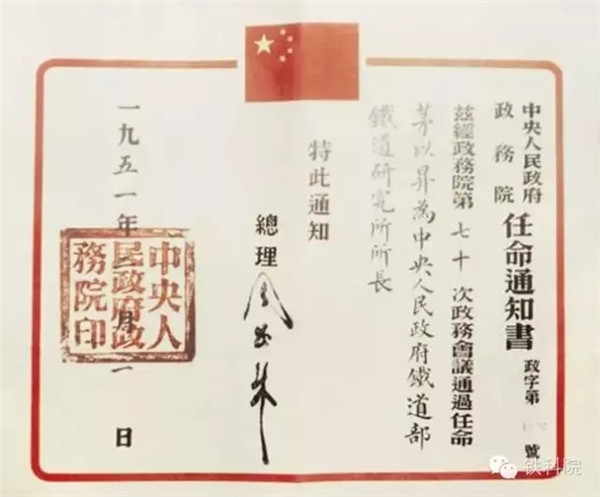 中央人民政府
政務院
任命通知書
政字第 號
茲經政務院第七十次政務會議通過任命
茅以昇為中央人民政府鐵道部
鐵道研究所所長
特此通知
總理 周恩來
一九五一年 月 日
中央人
民政府政
務院印
铁科院